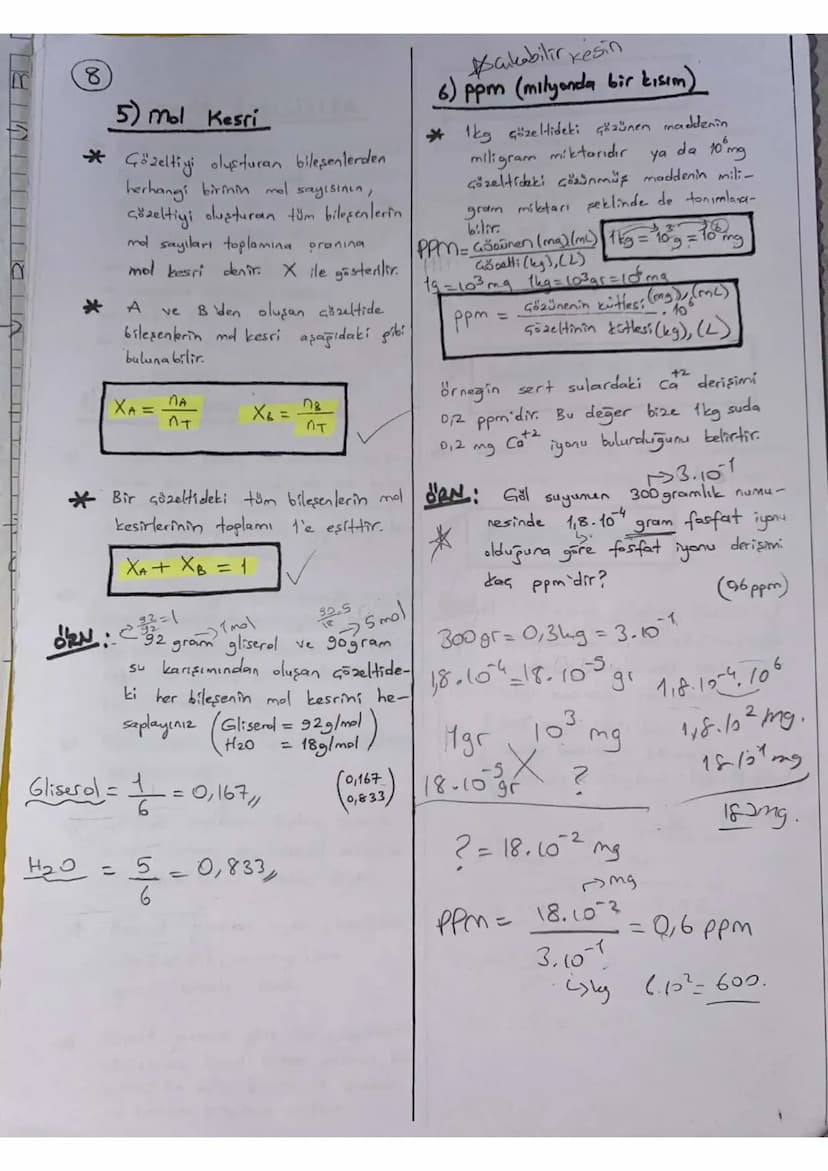 8
5) Mol Kesri
* Çözeltiyi oluşturan bileşenlerden
herhangi birinin mol sayısının,
çözeltiyi oluşturan tüm bileşenlerin
mol sayıları toplamına oranına
mol kesri denir. X ile gösterilir.
* A ve B'den oluşan çözeltide
bileşenlerin mol kesri aşağıdaki gibi
bulunabilir.
X_A = n_A / n_T X_B = n_B / n_T
* Bir çözeltideki tüm bileşenlerin mol
kesirlerinin toplamı 1'e eşittir.
X_A + X_B = 1
92/92 = 1 → 1 mol 90.5/18 → 5 mol
ÖRN: 92 gram gliserol ve 90gram
su karışımından oluşan çözeltide-
ki her bileşenin mol kesrini he-
saplayınız (Gliserol = 92g/mol
H2O = 18g/mol)
Gliserol = 1/6 = 0,167 (0,167
0,833)
H2O = 5/6 = 0,833
* Çıkabilir kesin
6) ppm (milyonda bir kısım)
* 1kg çözeltideki çözünen maddenin
miligram miktarıdır ya da 10⁶ mg
çözeltideki çözünmüş maddenin mili-
gram miktarı şeklinde de tanımlana-
bilir.
PPM = Çözünen (mg)(mL) / Çözelti (kg), (L) 1kg = 10³ g = 10⁶ mg
1g = 10³ mg 1kg = 10³ gr = 10⁶ mg
ppm = Çözünenin kütlesi (mg), (mL) / Çözeltinin kütlesi (kg), (L) . 10⁶
örneğin sert sulardaki Ca⁺² derişimi
0,2 ppm'dir. Bu değer bize 1kg suda
0,2 mg Ca⁺² iyonu bulunduğunu belirtir.
→ 3.10⁻¹
ÖRN: Göl suyunun 300 gramlık numu-
* nesinde 1,8.10⁻⁴ gram fosfat iyonu
olduğuna göre fosfat iyonu derişimi
kaç ppm'dir? (0,6 ppm)
300gr = 0,3kg = 3.10⁻¹
1,8.10⁻⁴ = 18.10⁻⁵ gr 1,8.10⁻⁴.10⁶
1gr 10³ mg 1,8.10² mg.
18.10⁻⁵ gr ? 18.10¹ mg
182mg.
? = 18.10⁻² mg
→ mg
PPM = 18.10⁻² / 3.10⁻¹ = 0,6 ppm
→ kg 6.10² = 600.